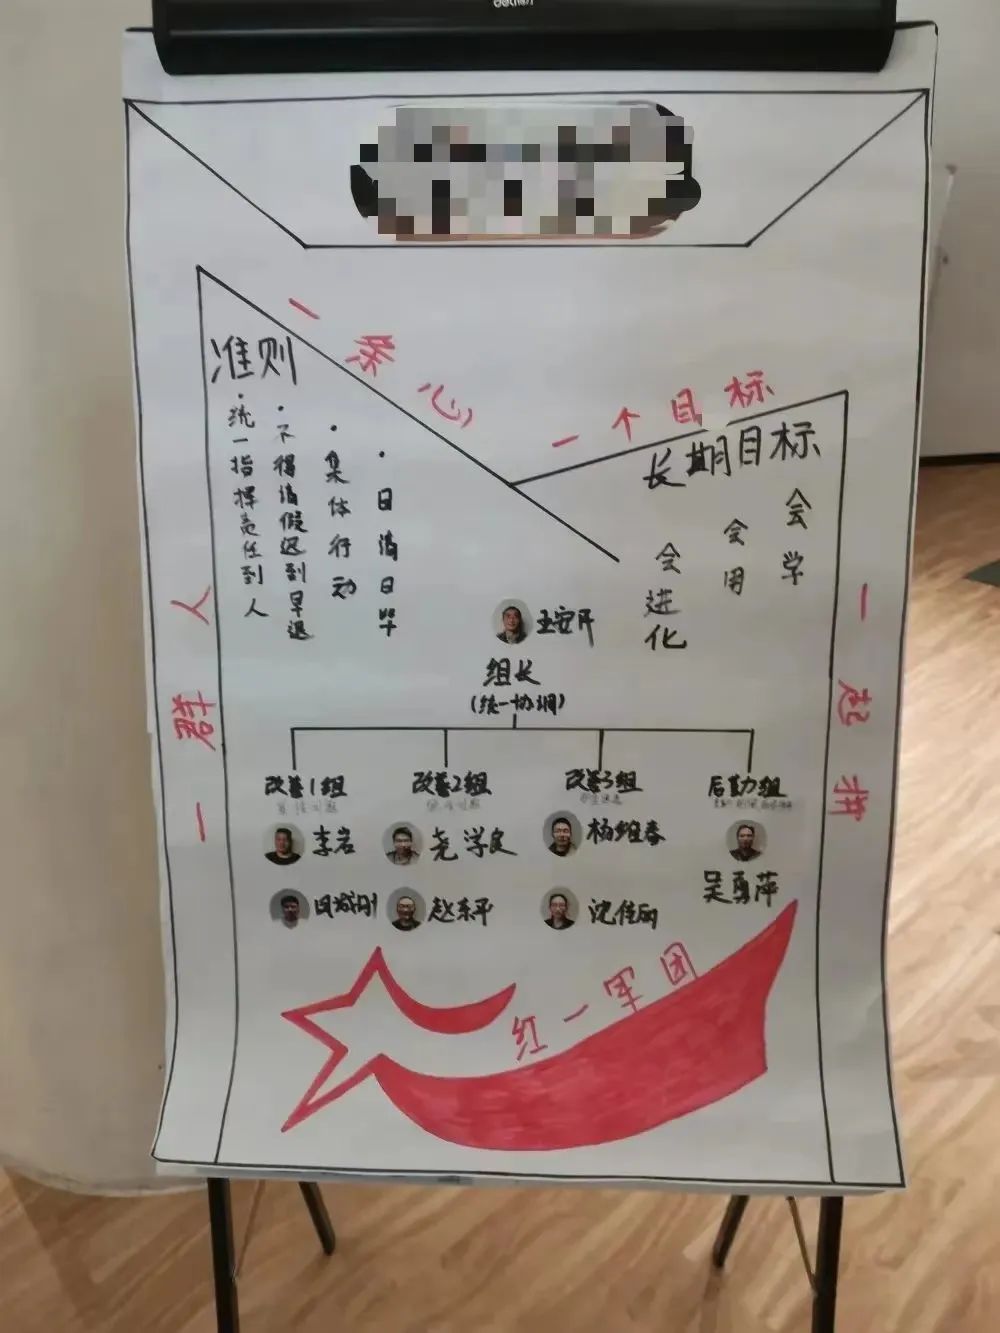 一条心
一个目标
准则
·统一指挥责任到人
·不得请假迟到早退
·集体行动
·日清日毕
长期目标
会学
会用
会进化
一群人
一起拼
组长
(统一协调)
改善1组
改善2组
改善3组
后勤组
李岩
尧学良
杨维春
吴勇萍
赵东平
红一军团